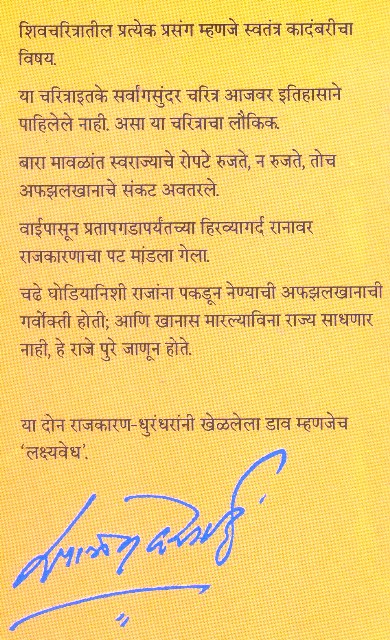 शिवचरित्रातील प्रत्येक प्रसंग म्हणजे स्वतंत्र कादंबरीचा
विषय.
या चरित्राइतके सर्वांगसुंदर चरित्र आजवर इतिहासाने
पाहिलेले नाही. असा या चरित्राचा लौकिक.
बारा मावळांत स्वराज्याचे रोपटे रुजते, न रुजते, तोच
अफझलखानाचे संकट अवतरले.
वाईपासून प्रतापगडापर्यंतच्या हिरव्यागर्द रानावर
राजकारणाचा पट मांडला गेला.
चढे घोडियानिशी राजांना पकडून नेण्याची अफझलखानाची
गर्वोक्ती होती; आणि खानास मारल्याविना राज्य साधणार
नाही, हे राजे पुरे जाणून होते.
या दोन राजकारण-धुरंधरांनी खेळलेला डाव म्हणजेच
‘लक्ष्यवेध’.